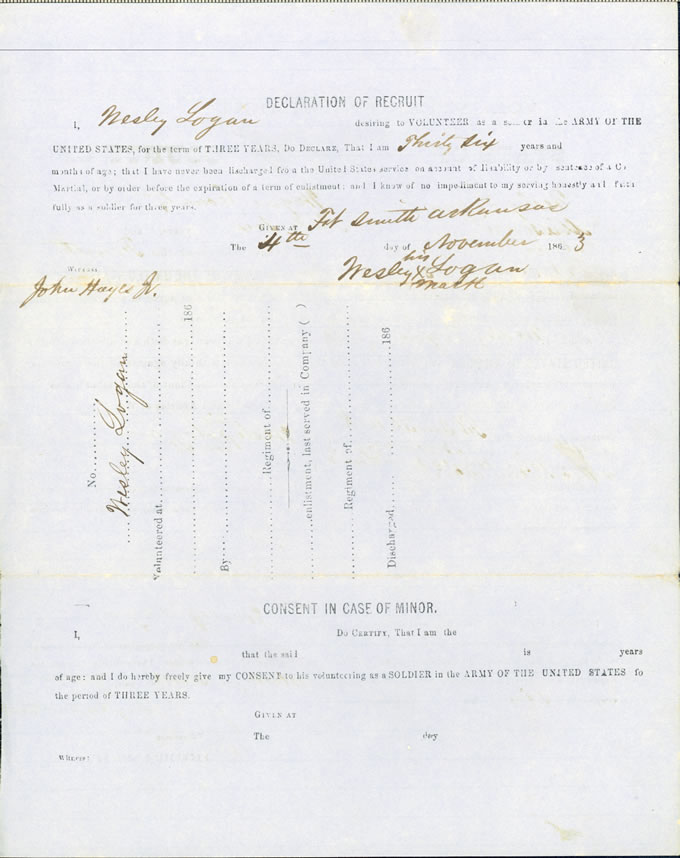 DECLARATION OF RECRUIT
I, Wesley Logan desiring to VOLUNTEER as a in the ARMY OF THE
UNITED STATES, for the term of THREE YEARS, Do DECLARE, That I am Thirty six years and
months of age; that I have never been discharged from the United States service on account of disability or by sentence of a Co
Martial, or by order before the expiration of a term of enlistment; and I know of no impediment to my serving honestly and
fully as a soldier for three years.
GIVEN AT Ft Smith arkansas
The 4th day of November 1863
his
WITNESS: Wesley X Logan
John Hayes Jr. mark
No.
Wesley Logan
Volunteered at
186
By
Regiment of
enlistment, last served in Company ( )
Regiment of
Discharged 186
CONSENT IN CASE OF MINOR.
I, Do CERTIFY, That I am the
that the said is years
of age: and I do hereby freely give my CONSENT to his volunteering as a SOLDIER in the ARMY OF THE UNITED STATES fo
the period of THREE YEARS.
GIVEN AT
The day